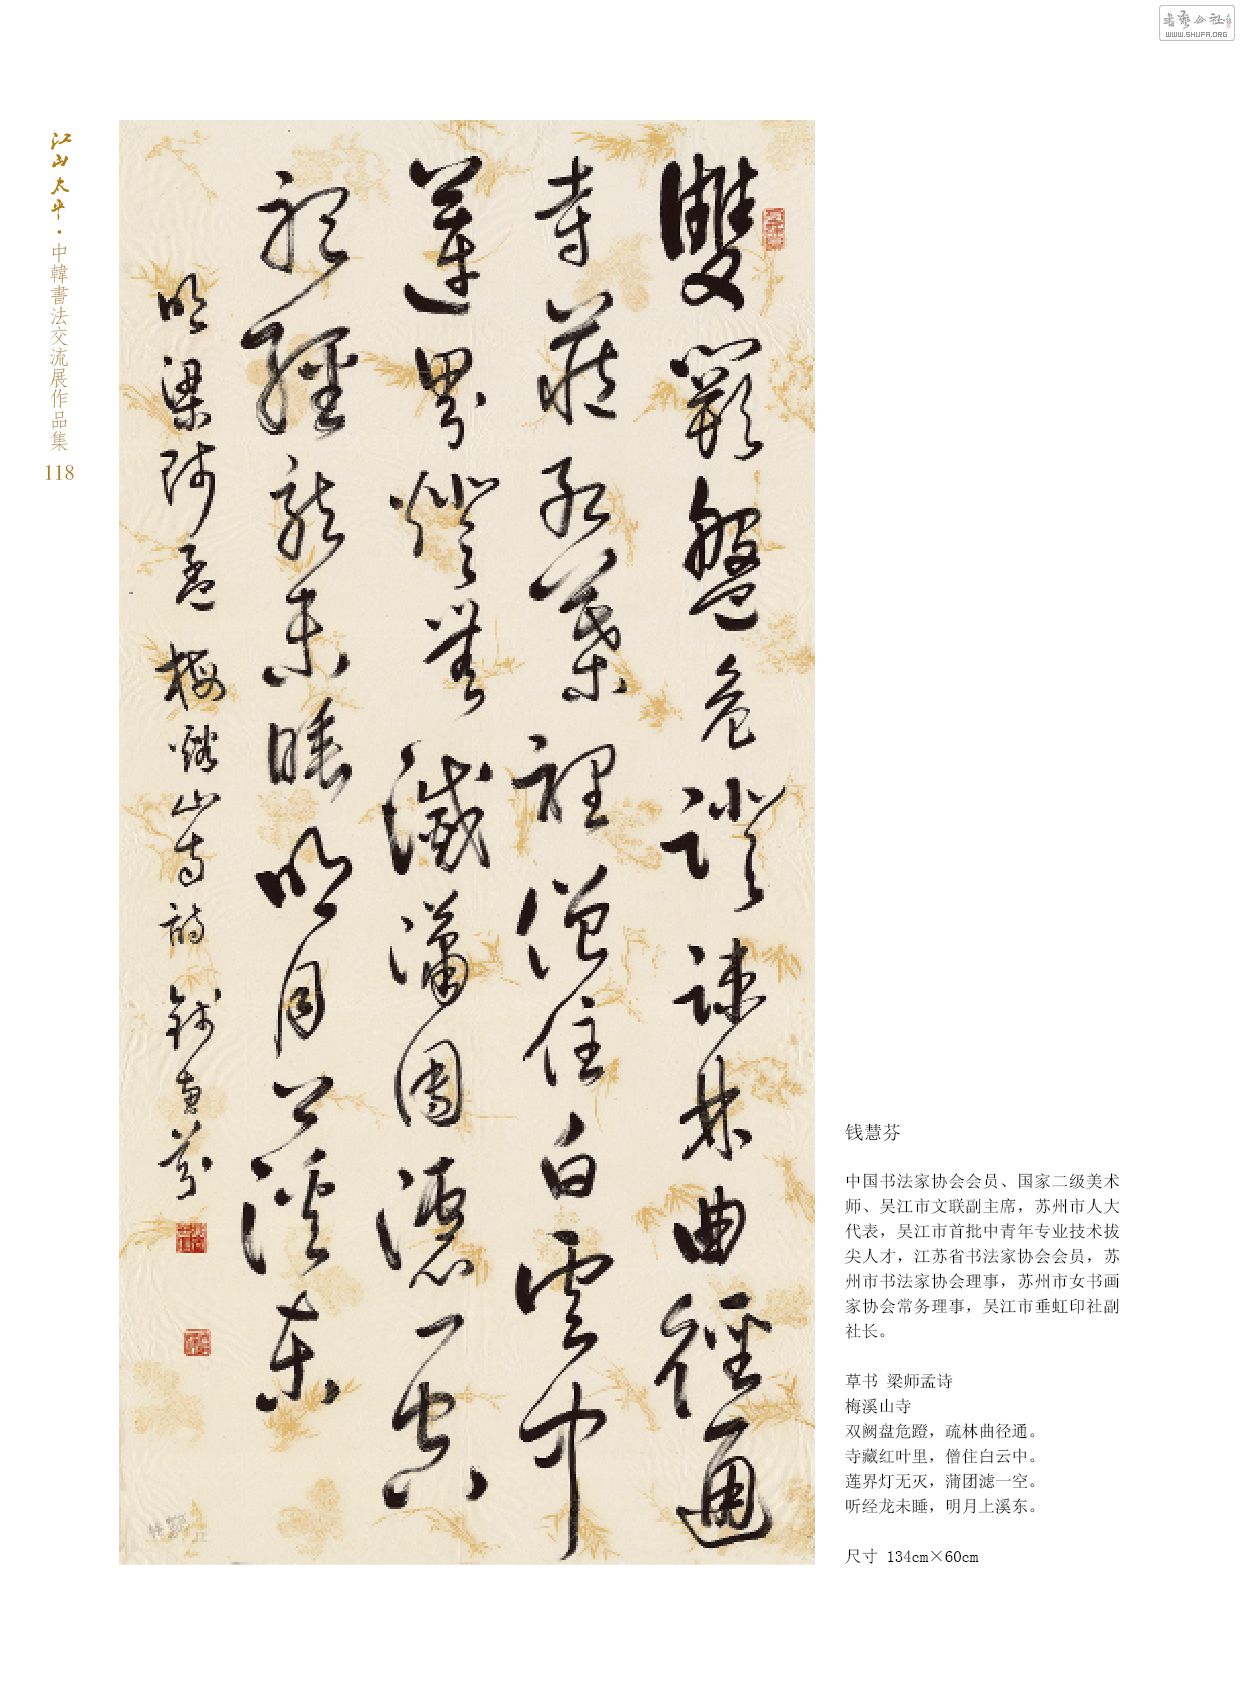 WWW.SHUFA.ORG
江山太平·中韓書法交流展作品集
118
雙闕盤危證疎林曲徑通
寺藏紅葉裡僧住白雲中
蓮界燈無滅蒲團濾一空
聽經龍未睡明月上溪東
明梁師孟梅谿山寺詩錢惠芬
钱慧芬
中国书法家协会会员、国家二级美术
师、吴江市文联副主席，苏州市人大
代表，吴江市首批中青年专业技术拔
尖人才，江苏省书法家协会会员，苏
州市书法家协会理事，苏州市女书画
家协会常务理事，吴江市垂虹印社副
社长。
草书 梁师孟诗
梅溪山寺
双阙盘危蹬，疏林曲径通。
寺藏红叶里，僧住白云中。
莲界灯无灭，蒲团滤一空。
听经龙未睡，明月上溪东。
尺寸 134cm×60cm